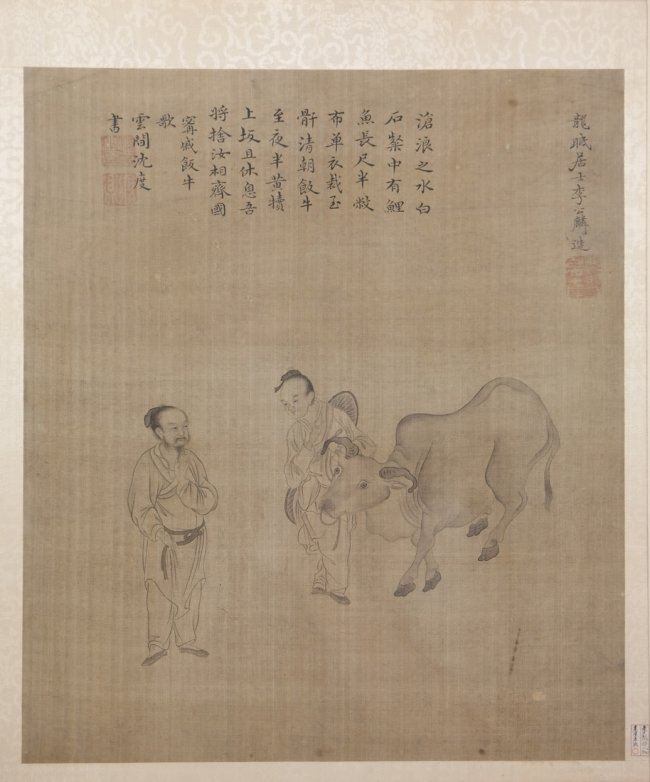 龍眠居士李公麟造
滄浪之水白
石粲中有鯉
魚長尺半敝
布單衣裁至
骭清朝飯牛
至夜半黄犢
上坂且休息吾
將捨汝相齊國
甯戚飯牛
歌
雲間沈度
書